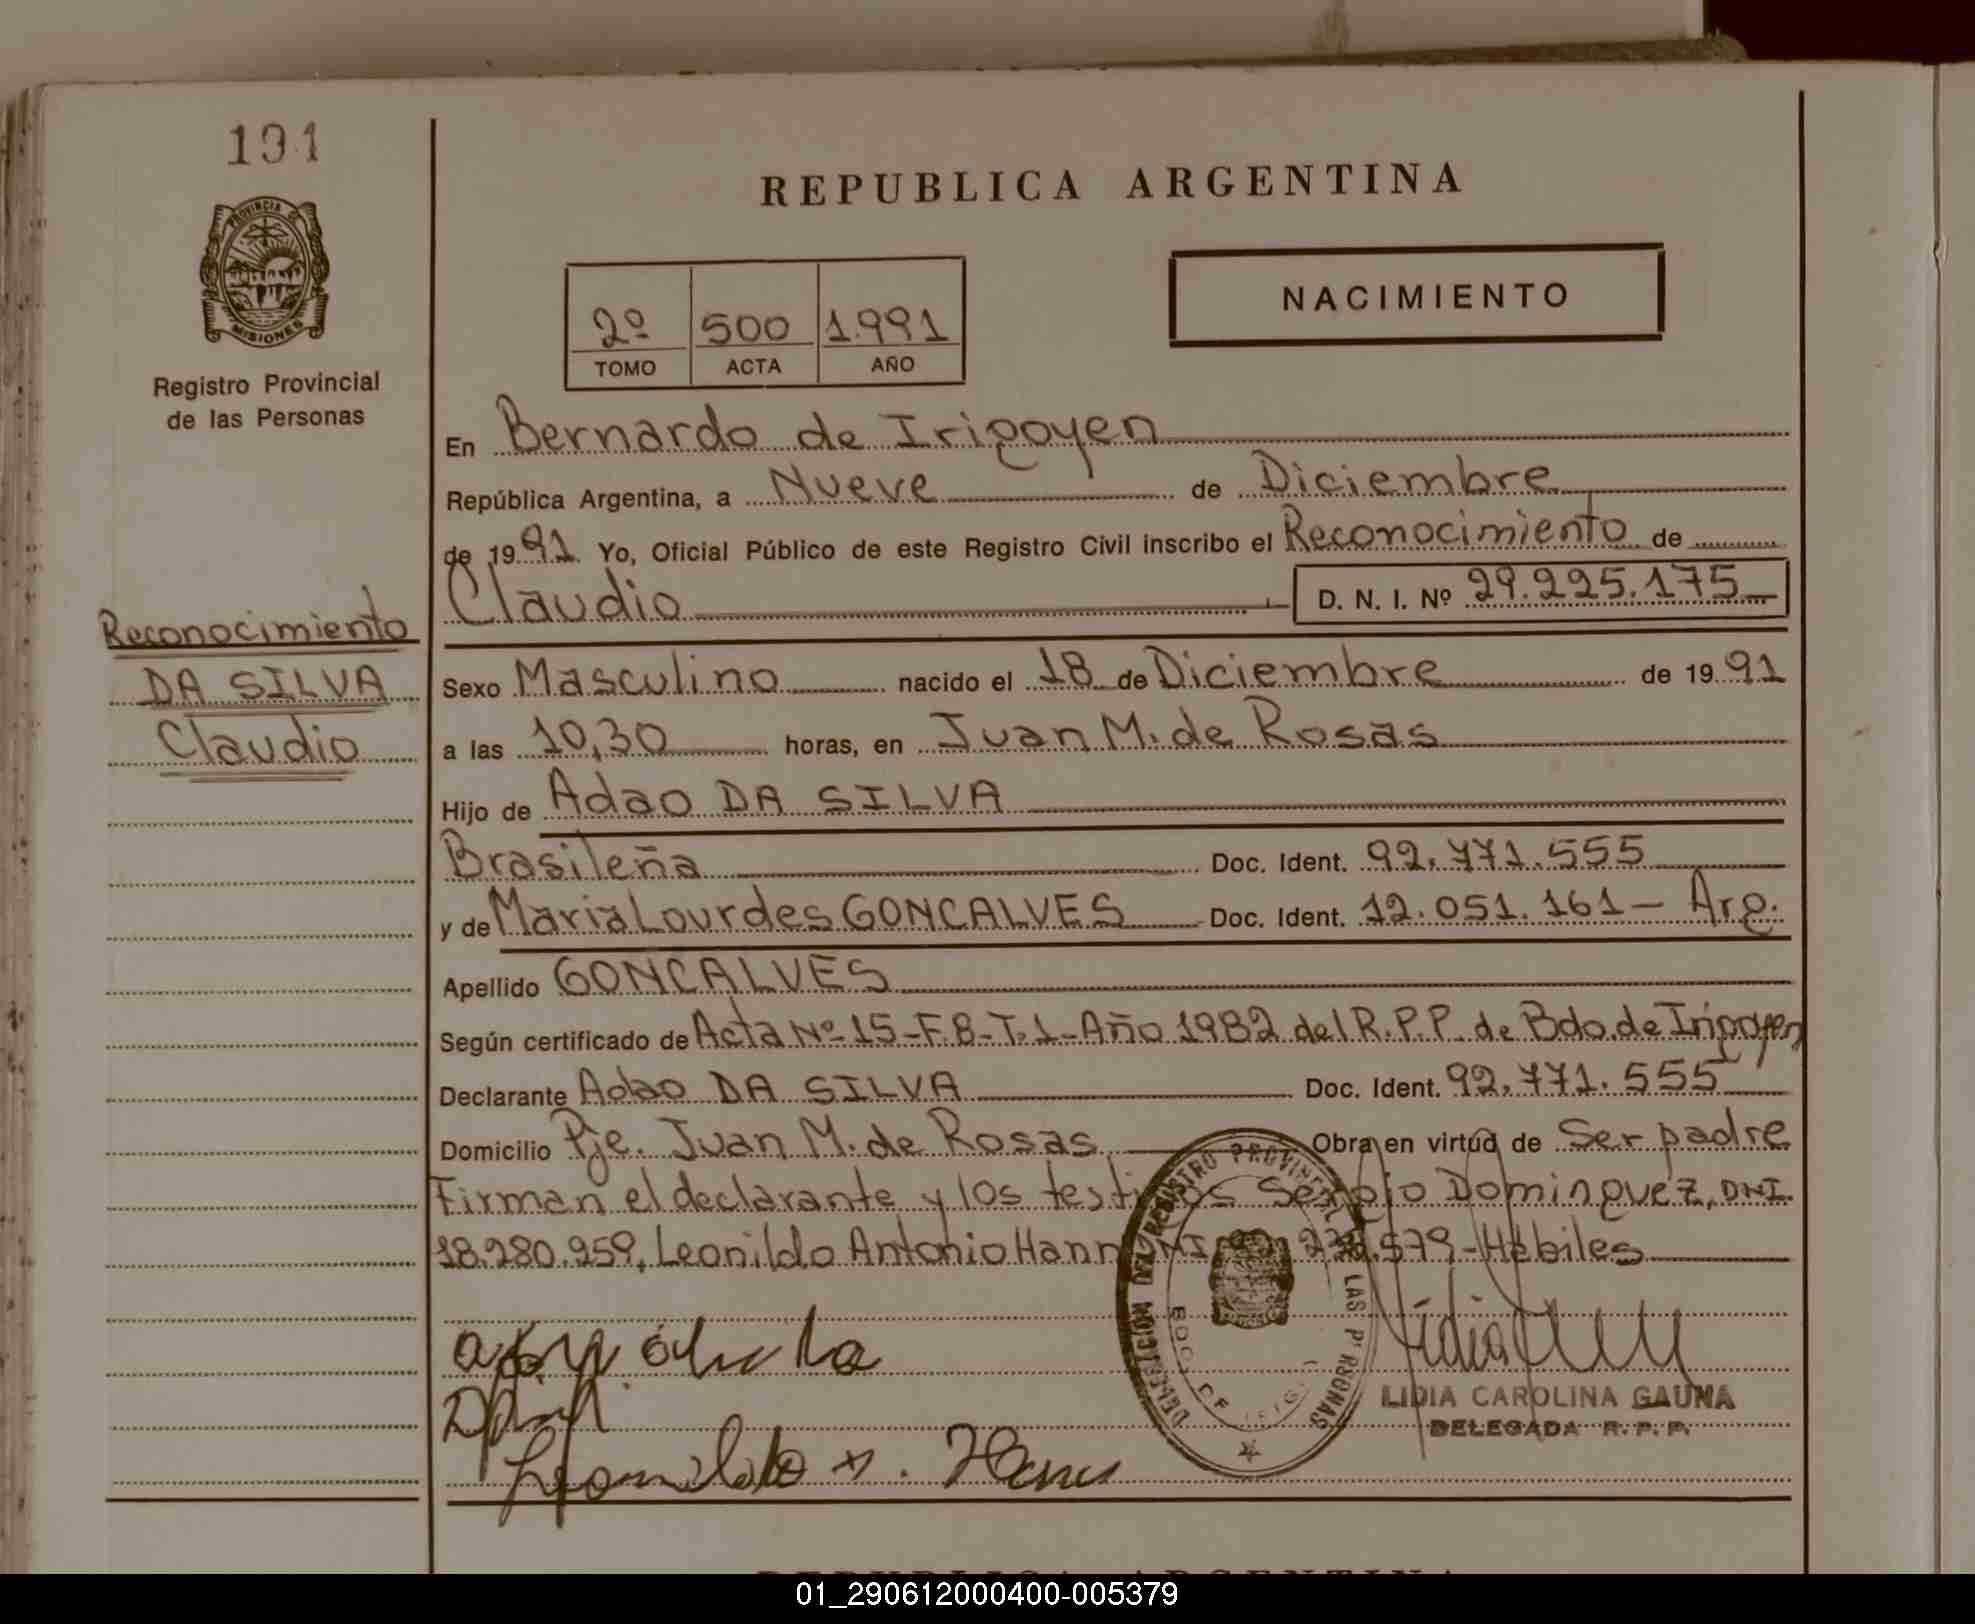 191
REPUBLICA ARGENTINA
PROVINCIA DE
MISIONES
Registro Provincial
de las Personas
NACIMIENTO
2º 500 1.991
TOMO ACTA AÑO
En Bernardo de Irigoyen
República Argentina, a Nueve de Diciembre
de 1991 Yo, Oficial Público de este Registro Civil inscribo el Reconocimiento de
Claudio D. N. I. Nº 29.225.175
Reconocimiento
DA SILVA
Claudio
Sexo Masculino nacido el 18 de Diciembre de 1991
a las 10,30 horas, en Juan M. de Rosas
Hijo de Adao DA SILVA
Brasileña Doc. Ident. 92.771.555
y de Maria Lourdes GONCALVES Doc. Ident. 12.051.161 - Arg.
Apellido GONCALVES
Según certificado de Acta Nº 15-F.8-T.1-Año 1982 del R.P.P. de Bdo. de Irigoyen
Declarante Adao DA SILVA Doc. Ident. 92.771.555
Domicilio Pje. Juan M. de Rosas Obra en virtud de Ser padre
Firman el declarante y los testigos Sergio Dominguez, DNI.
18.280.959, Leonildo Antonio Hann .579 - Hábiles
DIRECCION DEL REGISTRO PROVINCIAL DE LAS PERSONAS
BDO. DE IRIG.
LIDIA CAROLINA GAUNA
DELEGADA R. P. P.
REPUBLICA ARGENTINA
01_290612000400-005379